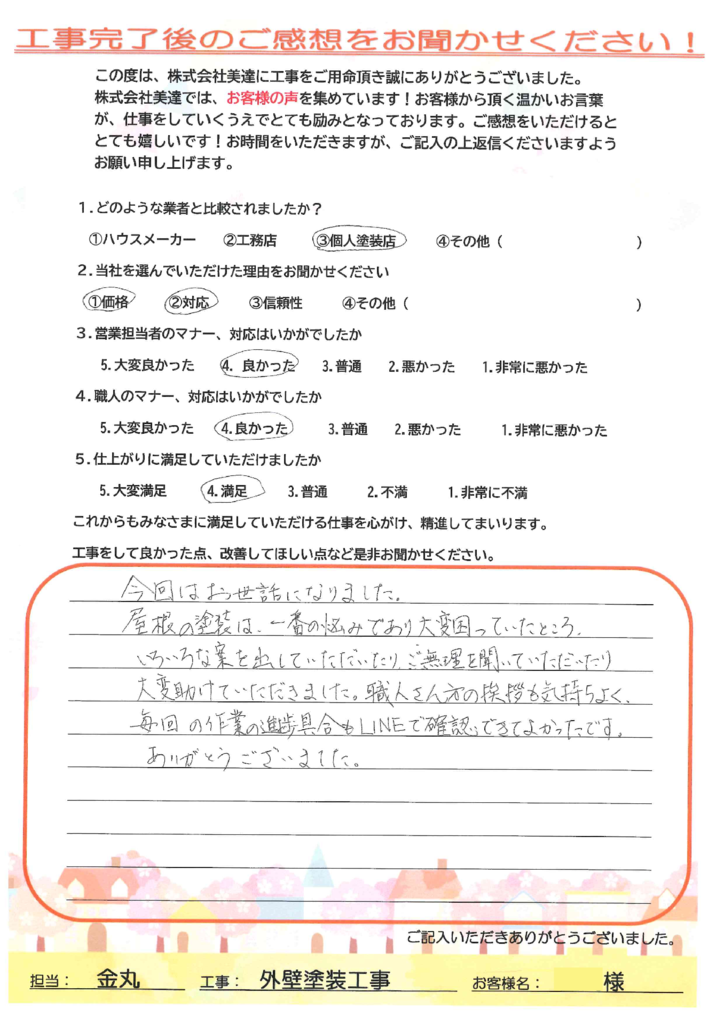 工事完了後のご感想をお聞かせください！
この度は、株式会社美達に工事をご用命頂き誠にありがとうございました。
株式会社美達では、お客様の声を集めています！お客様から頂く温かいお言葉
が、仕事をしていくうえでとても励みとなっております。ご感想をいただけると
とても嬉しいです！お時間をいただきますが、ご記入の上返信くださいますよう
お願い申し上げます。
1.どのような業者と比較されましたか？
①ハウスメーカー ②工務店 ③個人塗装店 ④その他（ ）
2.当社を選んでいただけた理由をお聞かせください
①価格 ②対応 ③信頼性 ④その他（ ）
3.営業担当者のマナー、対応はいかがでしたか
5.大変良かった 4.良かった 3.普通 2.悪かった 1.非常に悪かった
4.職人のマナー、対応はいかがでしたか
5.大変良かった 4.良かった 3.普通 2.悪かった 1.非常に悪かった
5.仕上がりに満足していただけましたか
5.大変満足 4.満足 3.普通 2.不満 1.非常に不満
これからもみなさまに満足していただける仕事を心がけ、精進してまいります。
工事をして良かった点、改善してほしい点など是非お聞かせください。
今回はお世話になりました。
屋根の塗装は、一番の悩みであり大変困っていたところ、
いろいろな案を出していただいたり、ご無理を聞いていただいたり
大変助けていただきました。職人さん方の挨拶も気持ちよく、
毎回の作業の進歩具合もLINEで確認できてよかったです。
ありがとうございました。
ご記入いただきありがとうございました。
担当： 金丸 工事： 外壁塗装工事 お客様名： 様